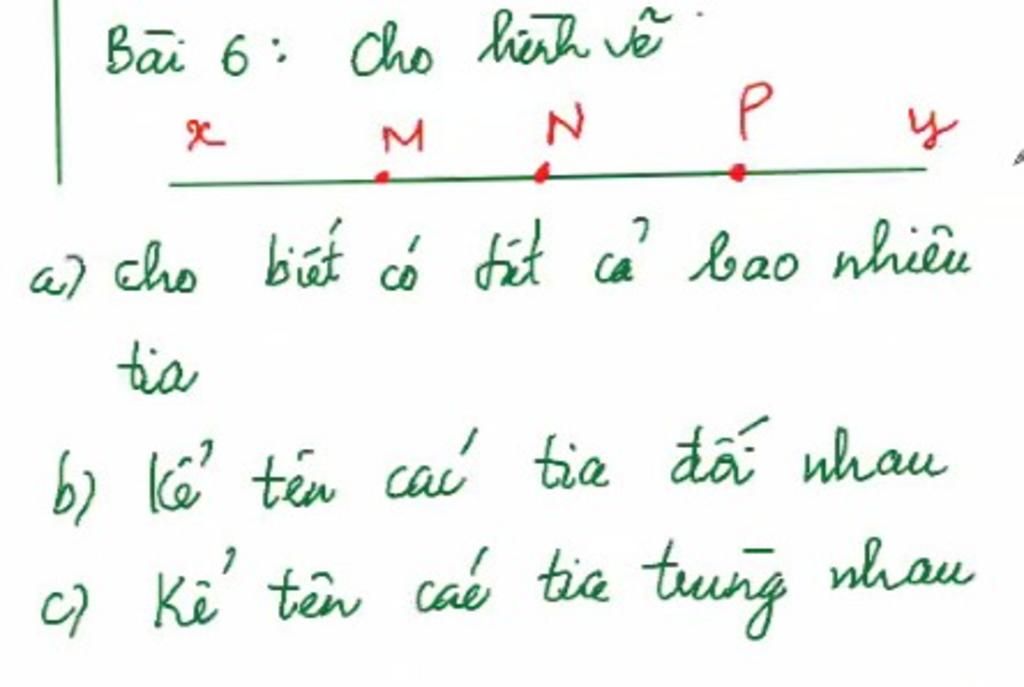 Bài 6: Cho hình vẽ
x M N P y
a) Cho biết có tất cả bao nhiêu
tia
b) Kể tên các tia đối nhau
c) Kể tên các tia trùng nhau